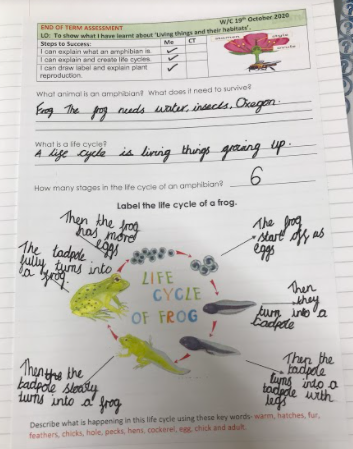 W/C 19th October 2020
END OF TERM ASSESSMENT
LO: To show what I have learnt about 'Living things and their habitats'.
Steps to Success: Me CT
I can explain what an amphibian is. ✓
I can explain and create life cycles. ✓
I can draw label and explain plant ✓
reproduction.
What animal is an amphibian? What does it need to survive?
Frog The frog needs water, insects, Oxegon.
What is a life cycle?
A life cycle is living things growing up.
How many stages in the life cycle of an amphibian? 6
Label the life cycle of a frog.
Then the frog
has more
eggs
The frog
start off as
eggs
The tadpole
fully turns into
a frog.
LIFE
CYCLE
OF FROG
Then
they
turn into a
tadpole
Then the
tadpole slowly
turns into a frog
Then the
tadpole
turns into a
tadpole with
legs
Describe what is happening in this life cycle using these key words- warm, hatches, fur,
feathers, chicks, hole, pecks, hens, cockerel, egg, chick and adult.